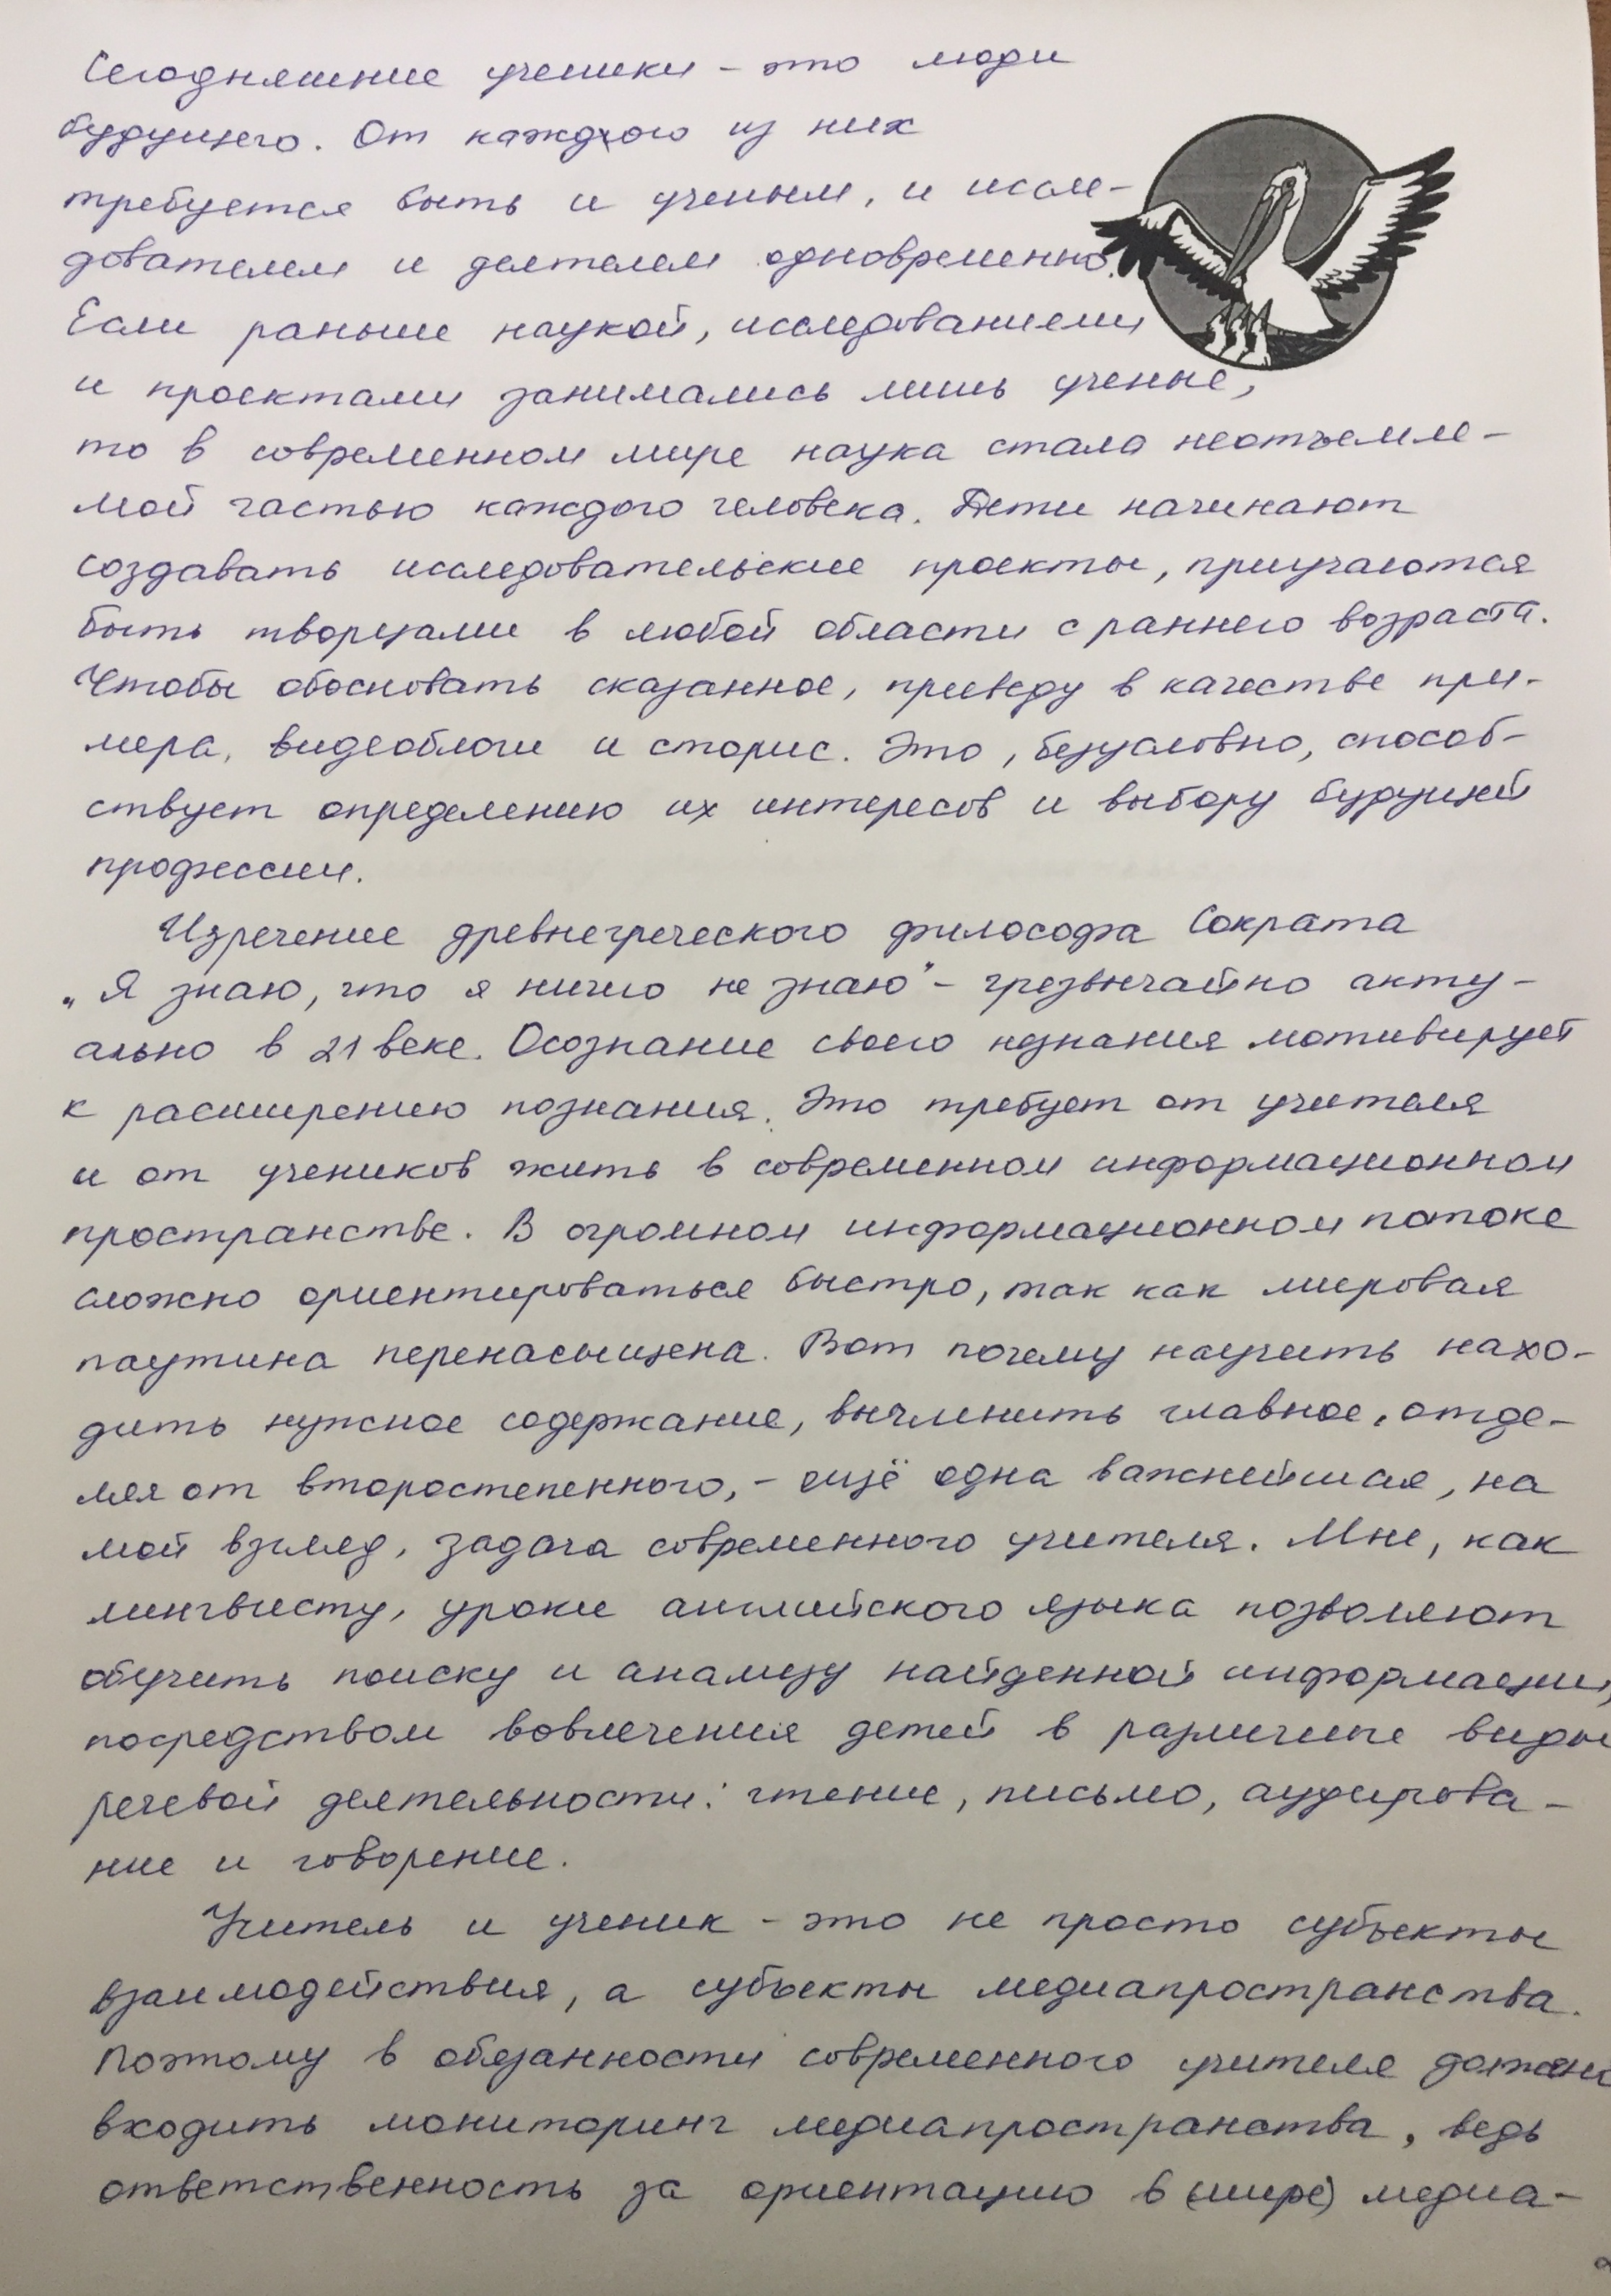 Сегодняшние ученики - это люди
будущего. От каждого из них
требуется быть и ученым, и иссле-
дователем и деятелем одновременно.
Если раньше наукой, исследованиями
и проектами занимались лишь ученые,
то в современном мире наука стала неотъемле-
мой частью каждого человека. Дети начинают
создавать исследовательские проекты, приучаются
быть творцами в любой области с раннего возраста.
Чтобы обосновать сказанное, приведу в качестве при-
мера, видеоблоги и сторис. Это, безусловно, способ-
ствует определению их интересов и выбору будущей
профессии.
Изречение древнегреческого философа Сократа
„Я знаю, что я ничего не знаю" - чрезвычайно акту-
ально в 21 веке. Осознание своего незнания мотивирует
к расширению познания. Это требует от учителя
и от учеников жить в современном информационном
пространстве. В огромном информационном потоке
сложно ориентироваться быстро, так как мировая
паутина перенасыщена. Вот почему научить нахо-
дить нужное содержание, вычленить главное, отде-
ляя от второстепенного, - ещё одна важнейшая, на
мой взгляд, задача современного учителя. Мне, как
лингвисту, уроки английского языка позволяют
обучить поиску и анализу найденной информации,
посредством вовлечения детей в различные виды
речевой деятельности: чтение, письмо, аудирова-
ние и говорение.
Учитель и ученик - это не просто субъекты
взаимодействия, а субъекты медиапространства.
Поэтому в обязанности современного учителя
входить мониторинг медиапространства, ведь
ответственность за ориентацию в (мире) медиа-